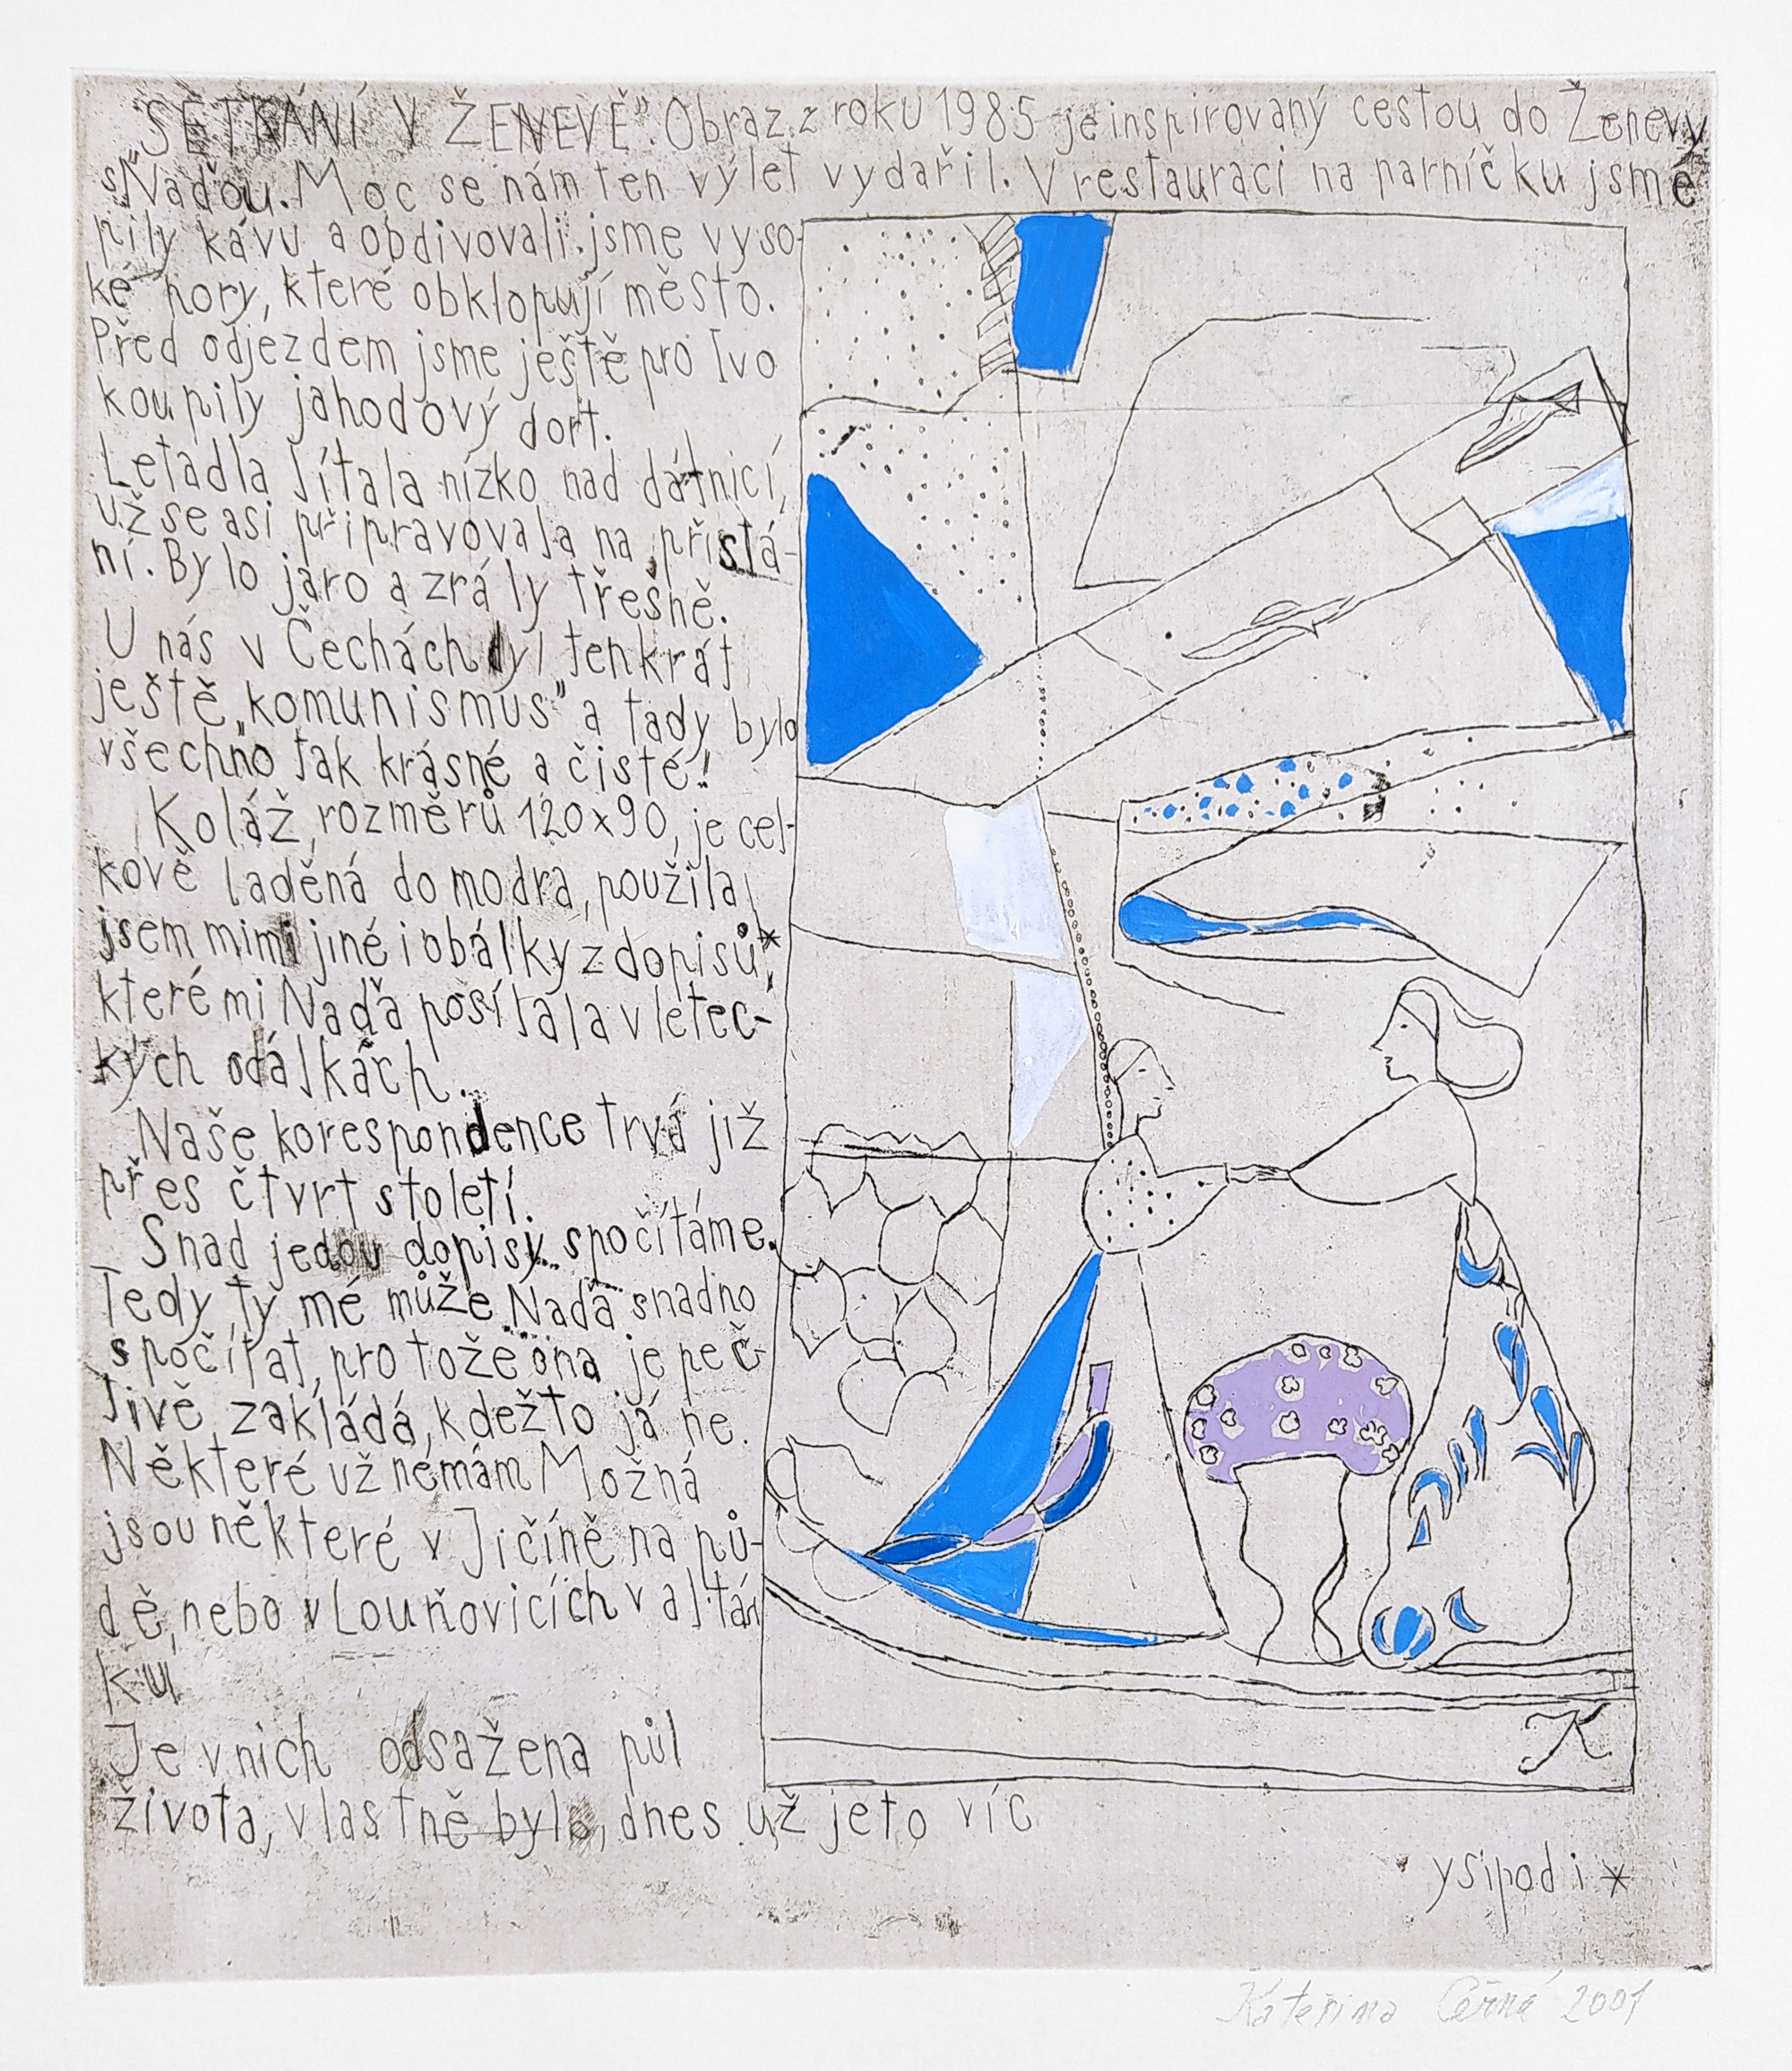 „SETKÁNÍ V ŽENEVĚ". Obraz z roku 1985 je inspirovaný cestou do Ženevy
s Naďou. Moc se nám ten výlet vydařil. V restauraci na parníčku jsme
pily kávu a obdivovali jsme vyso-
ké hory, které obklopují město.
Před odjezdem jsme ještě pro Ivo
koupily jahodový dort.
Letadla lítala nízko nad dálnicí,
už se asi připravovala na přistá-
ní. Bylo jaro a zrály třešně.
U nás v Čechách byl tenkrát
ještě „komunismus" a tady bylo
všechno tak krásné a čisté!
Koláž, rozměrů 120x90, je cel-
kově laděná do modra, použila
jsem mimi jiné i obálky z dopisů*,
které mi Naďa posílala v letec-
kých obálkách.
Naše korespondence trvá již
přes čtvrt století.
Snad jedou dopisy spočítáme.
Tedy ty mé může Naďa snadno
spočítat, protože ona je peč-
livě zakládá, kdežto já ne.
Některé už nemám Možná
jsou některé v Jičíně na pů-
dě, nebo v Louňovicích v altán
ku
Je v nich obsažena půl
života, vlastně bylo, dnes už je to víc
ysipod i *
K
Kateřina Černá 2001